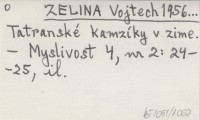 o
ZELINA Vojtech 1956...
Tatranské kamzíky v zime.
— Myslivost 4, nr 2: 24-
-25, il.